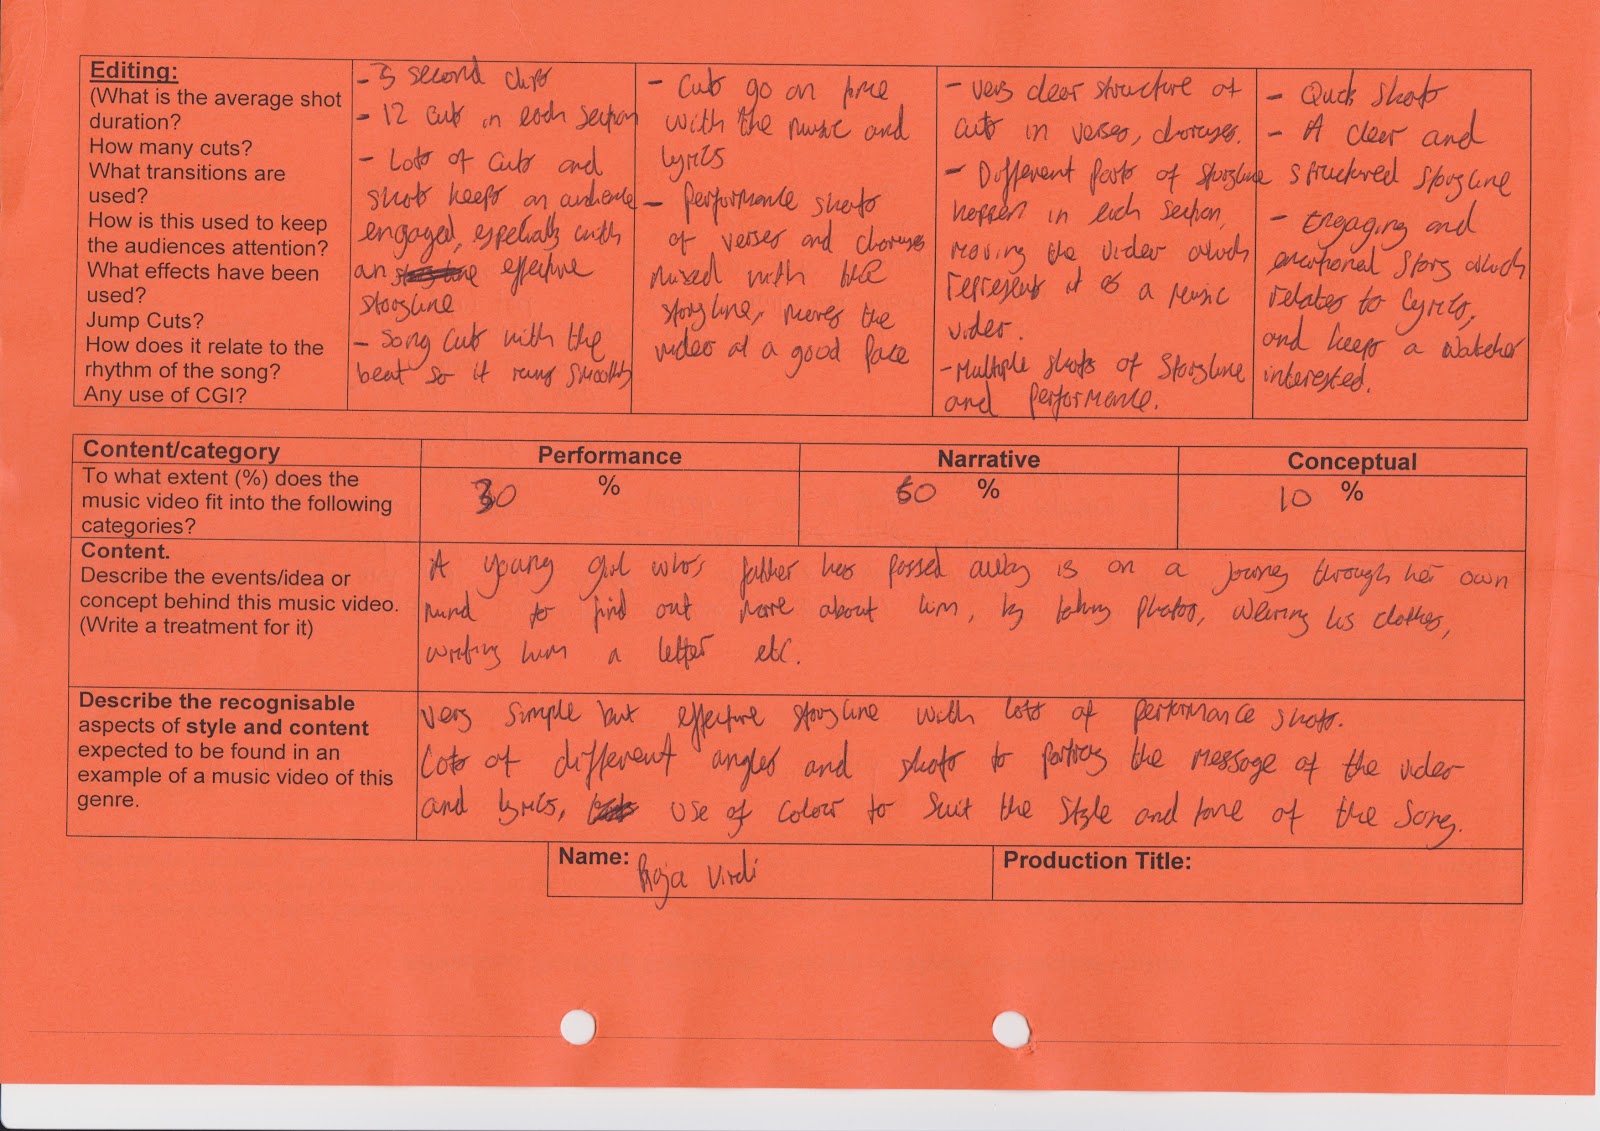 Editing:
(What is the average shot
duration?
How many cuts?
What transitions are
used?
How is this used to keep
the audiences attention?
What effects have been
used?
Jump Cuts?
How does it relate to the
rhythm of the song?
Any use of CGI?
- second clips
- 12 cuts in each section
- Lots of cuts and
shots keeps an audience
engaged, especially with
an effective
storyline
- Song cuts with the
beat so it runs smoothly
- Cuts go on time
with the music and
lyrics
- Performance shots
of verses and choruses
mixed with the
storyline, moves the
video at a good pace
- very clear structure of
cuts in verses, choruses.
- Different parts of storyline
happen in each section,
moving the video which
represents it as a music
video.
- Multiple shots of storyline
and performance.
- Quick shots
- A clear and
structured storyline
- Engaging and
emotional story which
relates to lyrics,
and keeps a watcher
interested.
Content/category
Performance
Narrative
Conceptual
To what extent (%) does the
music video fit into the following
categories?
30 %
60 %
10 %
Content.
Describe the events/idea or
concept behind this music video.
(Write a treatment for it)
A young girl who's father has passed away is on a journey through her own
mind to find out more about him, by taking photos, wearing his clothes,
writing him a letter etc.
Describe the recognisable
aspects of style and content
expected to be found in an
example of a music video of this
genre.
Very simple but effective storyline with lots of performance shots.
Lots of different angles and shots to portray the message of the video
and lyrics, use of colour to suit the style and tone of the song.
Name: Virdi
Production Title: